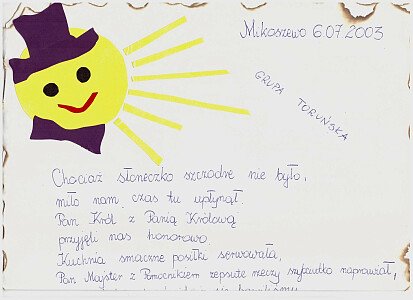 Mikoszewo 6.07.2003
GRUPA TORUŃSKA
Chociaż słoneczko szczodre nie było,
miło nam czas tu upłynął.
Pan Król z Panią Królową
przyjęli nas honorowo.
Kuchnia smaczne posiłki serwowała,
Pan Majster z Pomocnikiem zepsute rzeczy szybciutko naprawiał,